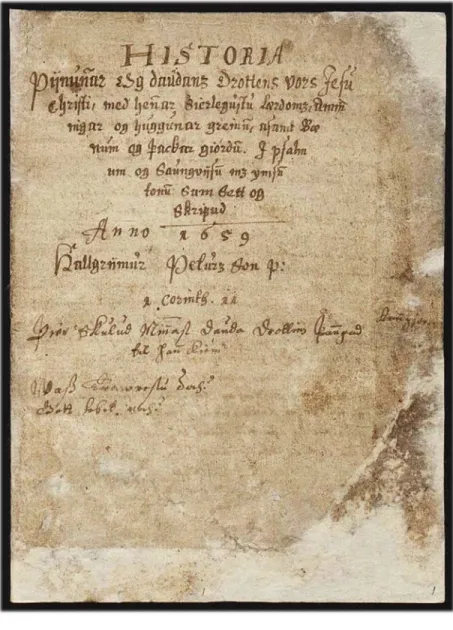 HISTORIA
Pijnun̄ar Og daudans Drottens vors Jesu
Christi, med hen̄ar Sierlegustu lærdoms, Amin̄
ingar og huggunar greinū, asamt Bæ
num og þackar giördū. I psalm
um og Saungvijsū mz ymsū
tonū Sam Sett og
Skrifud
Anno 1659
Hallgrijmur Peturs Son p:
1. Corinth. 11
Þier Skulud Min̄ast dauda Drottins þan̄gad
til han̄ kiemur